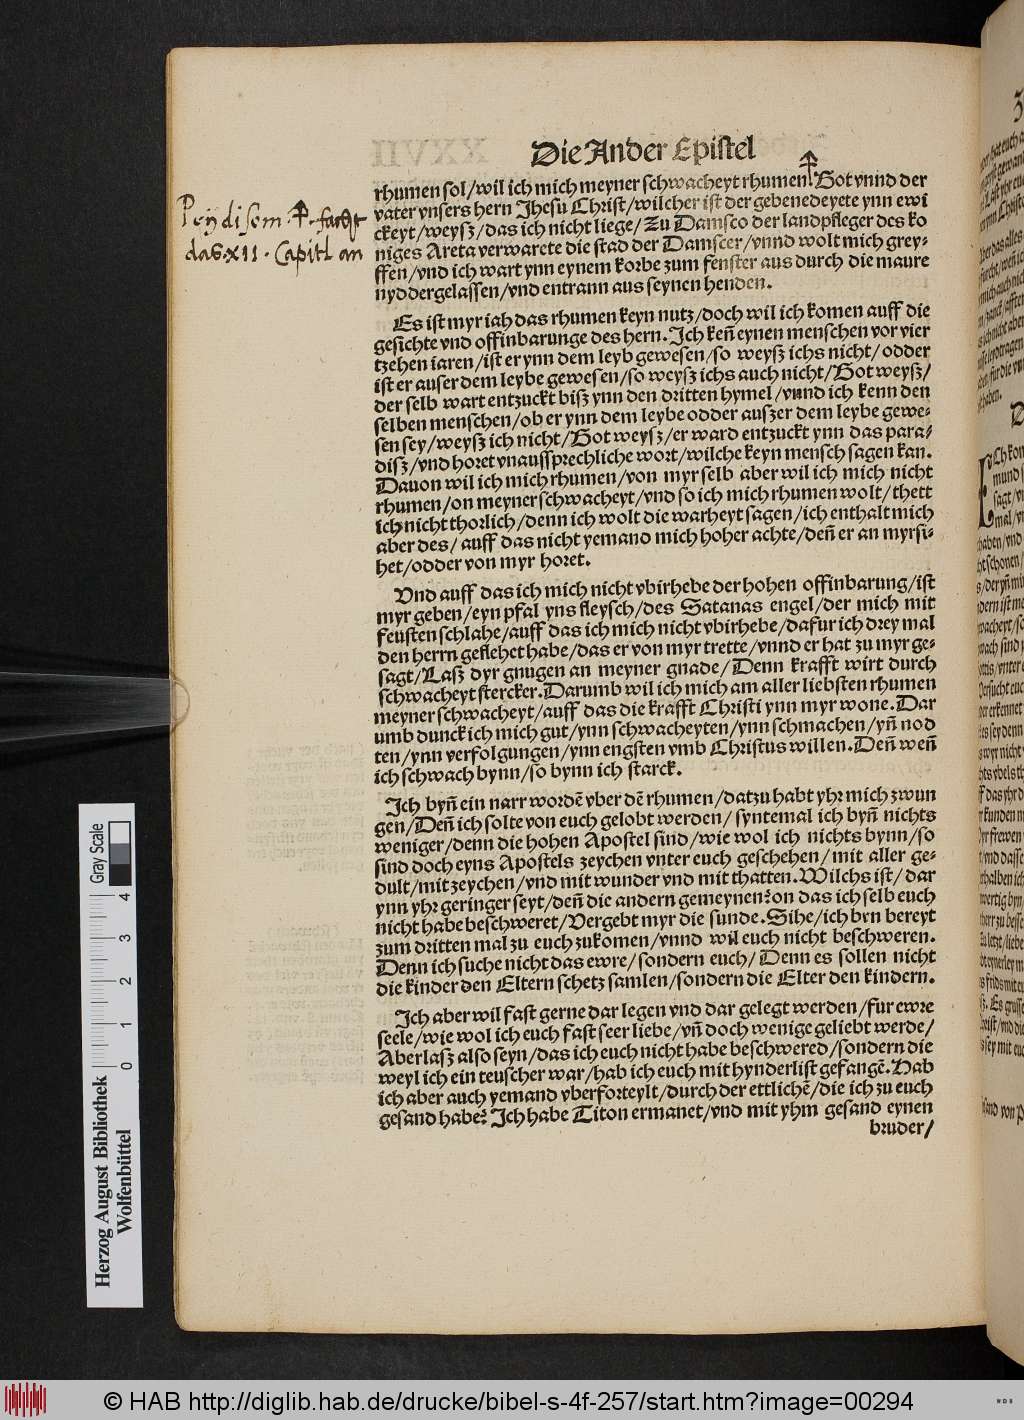 Die Ander Epistel
rhumen sol/wil ich mich meyner schwacheyt rhumen. Got vnnd der
vater vnsers hern Jhesu Christ/wilcher ist der gebenedeyete ynn ewi
ckeyt/weysz/das ich nicht liege/Zu Damsco der landpfleger des ko
niges Areta verwarete die stad der Damscer/vnnd wolt mich grey-
ffen/vnd ich wart ynn eynem korbe zum fenster aus durch die maure
nyddergelassen/vnd entrann aus seynen henden.
Peÿ disem facht
das XII. Capitl an
Es ist myr iah das rhumen keyn nutz/doch wil ich komen auff die
gesichte vnd offinbarunge des hern. Jch keñ eynen menschen vor vier
tzehen iaren/ist er ynn dem leyb gewesen/so weysz ichs nicht/odder
ist er auser dem leybe gewesen/so weysz ichs auch nicht/Got weysz/
der selb wart entzuckt bisz ynn den dritten hymel/vnnd ich kenn den
selben menschen/ob er ynn dem leybe odder auszer dem leybe gewe-
sen sey/weysz ich nicht/Got weysz/er ward entzuckt ynn das para-
disz/vnd horet vnaussprechliche wort/wilche keyn mensch sagen kan.
Dauon wil ich mich rhumen/von myr selb aber wil ich mich nicht
rhumen/on meyner schwacheyt/vnd so ich mich rhumen wolt/thett
ich nicht thorlich/denn ich wolt die warheyt sagen/ich enthalt mich
aber des/auff das nicht yemand mich hoher achte/deñ er an myr si-
het/odder von myr horet.
Vnd auff das ich mich nicht vbirhebe der hohen offinbarung/ist
myr geben/eyn pfal yns fleysch/des Satanas engel/der mich mit
feusten schlahe/auff das ich mich nicht vbirhebe/dafur ich drey mal
den herrn geflehet habe/das er von myr trette/vnnd er hat zu myr ge-
sagt/Lasz dyr gnugen an meyner gnade/Denn krafft wirt durch
schwacheyt stercker. Darumb wil ich mich am aller liebsten rhumen
meyner schwacheyt/auff das die krafft Christi ynn myr wone. Dar
umb dunck ich mich gut/ynn schwacheyten/ynn schmachen/yñ nod
ten/ynn verfolgungen/ynn engsten vmb Christus willen. Deñ weñ
ich schwach bynn/so bynn ich starck.
Jch byñ ein narr wordẽ vber dẽ rhumen/datzu habt yhr mich zwun
gen/Deñ ich solte von euch gelobt werden/syntemal ich byñ nichts
weniger/denn die hohen Apostel sind/wie wol ich nichts bynn/so
sind doch eyns Apostels zeychen vnter euch geschehen/mit aller ge-
dult/mit zeychen/vnd mit wunder vnd mit thatten. Wilchs ist/dar
ynn yhr geringer seyt/deñ die andern gemeynen? on das ich selb euch
nicht habe beschweret/Vergebt myr die sunde. Sihe/ich byn bereyt
zum dritten mal zu euch zukomen/vnnd wil euch nicht beschweren.
Denn ich suche nicht das ewre/sondern euch/Denn es sollen nicht
die kinder den Eltern schetz samlen/sondern die Elter den kindern.
Jch aber wil fast gerne dar legen vnd dar gelegt werden/fur ewre
seele/wie wol ich euch fast seer liebe/vñ doch wenige geliebt werde/
Aber lasz also seyn/das ich euch nicht habe beschwered/sondern die
weyl ich ein teuscher war/hab ich euch mit hynderlist gefangẽ. Hab
ich aber auch yemand vberforteylt/durch der ettlichẽ/die ich zu euch
gesand habe? Jch habe Titon ermanet/vnd mit yhm gesand eynen
bruder/
Gray Scale
0 1 2 3 4
Herzog August Bibliothek
Wolfenbüttel
© HAB http://diglib.hab.de/drucke/bibel-s-4f-257/start.htm?image=00294